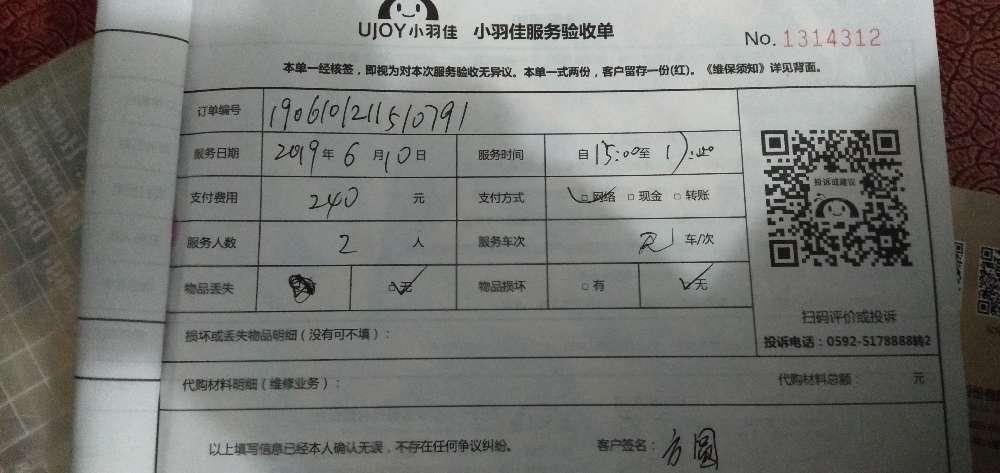 UJOY小羽佳 小羽佳服务验收单
No. 1314312
本单一经核签，即视为对本次服务验收无异议。本单一式两份，客户留存一份(红)。《维保须知》详见背面。
订单编号 1906101211510791
服务日期 2019年6月10日 服务时间 自15:00至17:00
支付费用 240 元 支付方式 网络 现金 转账
投诉或建议
服务人数 2 人 服务车次 车/次
物品丢失 无 物品损坏 有 无
扫码评价或投诉
损坏或丢失物品明细（没有可不填）：
投诉电话：0592-5178888转2
代购材料明细（维修业务）： 代购材料总额 元
以上填写信息已经本人确认无误，不存在任何争议纠纷。 客户签名：方圆